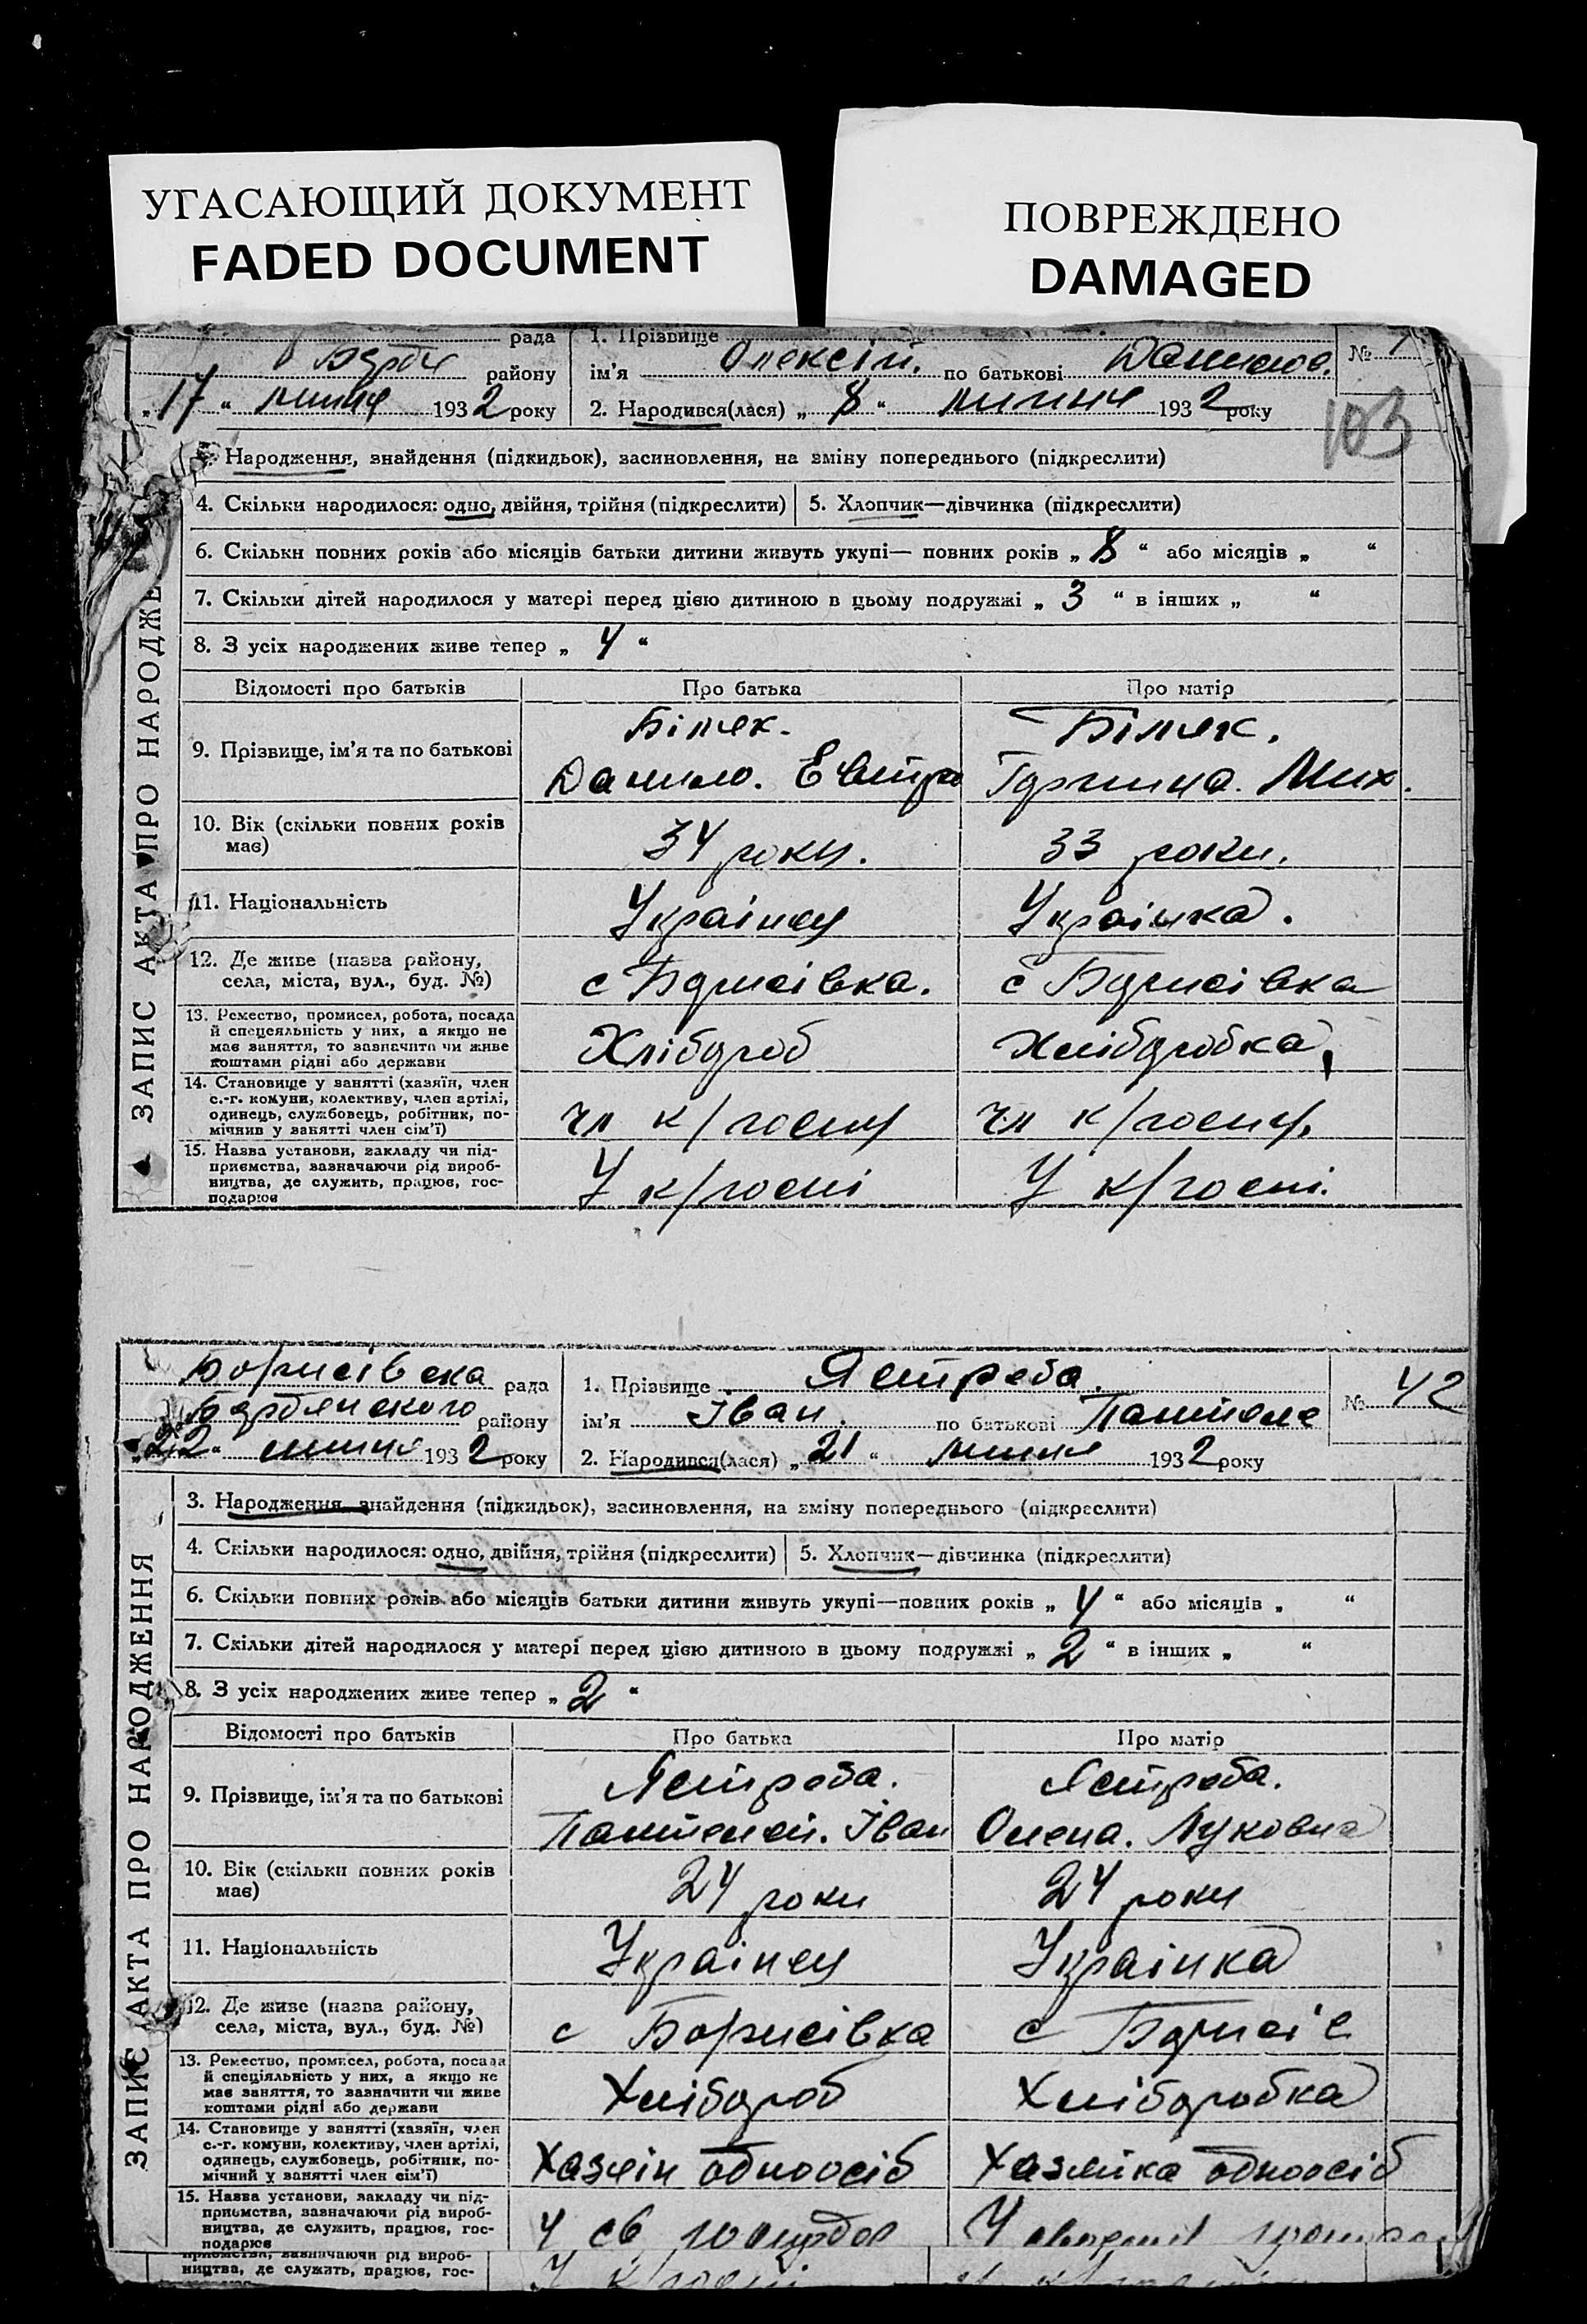 УГАСАЮЩИЙ ДОКУМЕНТ
FADED DOCUMENT
ПОВРЕЖДЕНО
DAMAGED
рада
району
„17“ липня 1932 року
1. Прізвище
ім'я Олексій. по батькові Данилов.
2. Народився(лася) „8“ липня 1932 року
№
103
ЗАПИС АКТА ПРО НАРОДЖЕ
Народження, знайдення (підкидьок), засиновлення, на зміну попереднього (підкреслити)
4. Скільки народилося: одно, двійня, трійня (підкреслити)
5. Хлопчик—дівчинка (підкреслити)
6. Скільки повних років або місяців батьки дитини живуть укупі— повних років „8“ або місяців „ “
7. Скільки дітей народилося у матері перед цією дитиною в цьому подружжі „3“ в інших „ “
8. З усіх народжених живе тепер „4“
Відомості про батьків
Про батька
Про матір
9. Прізвище, ім'я та по батькові
Біляк.
Данило. Евтро
Біляк.
Мих.
10. Вік (скільки повних років
має)
34 роки.
33 роки.
11. Національність
Українец
Українка.
12. Де живе (назва району,
села, міста, вул., буд. №)
с Борисівка.
с Борисівка
13. Ремество, промисел, робота, посада
й спецеяльність у них, а якщо не
має заняття, то зазначити чи живе
коштами рідні або держави
Хлібороб
Хліборобка,
14. Становище у занятті (хазяїн, член
с.-г. комуни, колективу, член артілі,
одинець, службовець, робітник, по-
мічник у занятті член сім'ї)
чл к/госпу
чл к/госпу.
15. Назва установи, закладу чи під-
приємства, зазначаючи рід вироб-
ництва, де служить, працює, гос-
подарює
У к/госпі
У к/госпі.
Борисівска рада
Бердянского району
„22“ липня 1932 року
1. Прізвище Ястреба.
ім'я Іван. по батькові Пантеле
2. Народився(лася) „21“ липня 1932 року
№ 42
ЗАПИС АКТА ПРО НАРОДЖЕННЯ
3. Народження, знайдення (підкидьок), засиновлення, на зміну попереднього (підкреслити)
4. Скільки народилося: одно, двійня, трійня (підкреслити)
5. Хлопчик—дівчинка (підкреслити)
6. Скільки повних років або місяців батьки дитини живуть укупі—повних років „4“ або місяців „ “
7. Скільки дітей народилося у матері перед цією дитиною в цьому подружжі „2“ в інших „ “
8. З усіх народжених живе тепер „2“
Відомості про батьків
Про батька
Про матір
9. Прізвище, ім'я та по батькові
Ястреба.
Пантелей. Іван
Ястреба.
Олена. Луковна
10. Вік (скільки повних років
має)
24 роки
24 роки
11. Національність
Українец
Українка
12. Де живе (назва району,
села, міста, вул., буд. №)
с Борисівка
с Борисів
13. Ремество, промисел, робота, посада
й спеціяльність у них, а якщо не
має заняття, то зазначити чи живе
коштами рідні або держави
Хлібороб
Хліборобка
14. Становище у занятті (хазяїн, член
с.-г. комуни, колективу, член артілі,
одинець, службовець, робітник, по-
мічний у занятті член сім'ї)
Хазяін одноосіб
Хазяйка одноосіб
15. Назва установи, закладу чи під-
приємства, зазначаючи рід вироб-
ництва, де служить, працює, гос-
подарює
У св
У
приємства, зазначаючи рід вироб-
ництва, де служить, працює, гос-